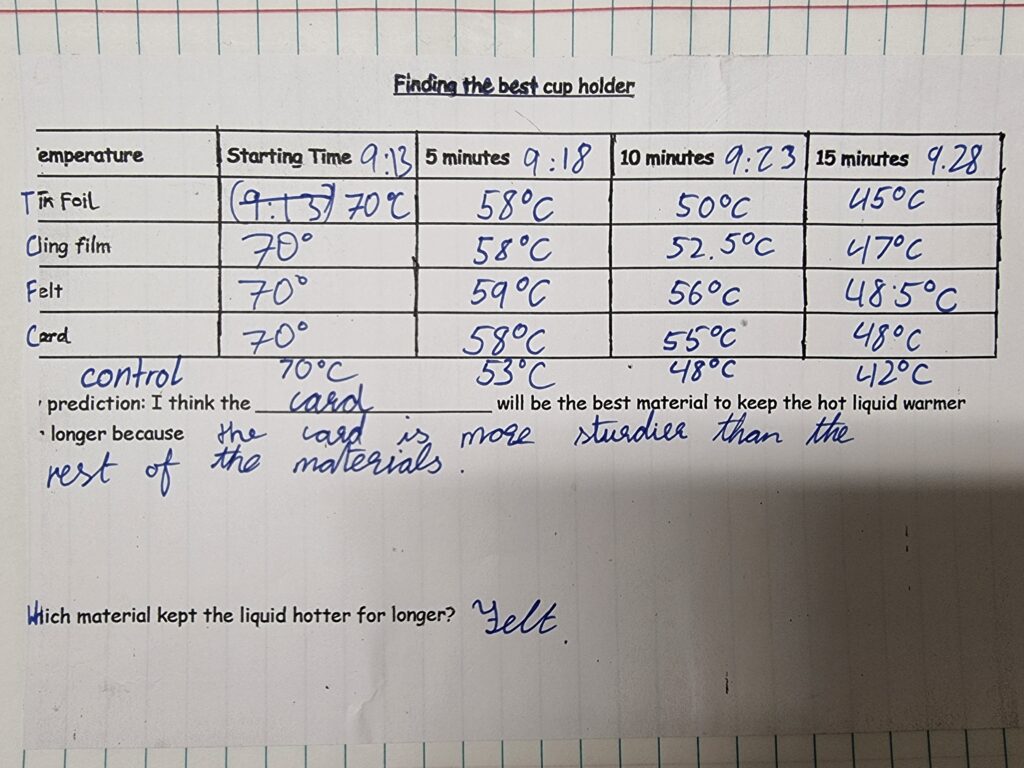 Finding the best cup holder
emperature Starting Time 9:13 5 minutes 9:18 10 minutes 9:23 15 minutes 9.28
Tin Foil (9:13) 70°C 58°C 50°C 45°C
Cling film 70° 58°C 52.5°C 47°C
Felt 70° 59°C 56°C 48.5°C
Card 70° 58°C 55°C 48°C
control 70°C 53°C 48°C 42°C
prediction: I think the card will be the best material to keep the hot liquid warmer
longer because the card is more sturdier than the
rest of the materials.
Which material kept the liquid hotter for longer? Felt.